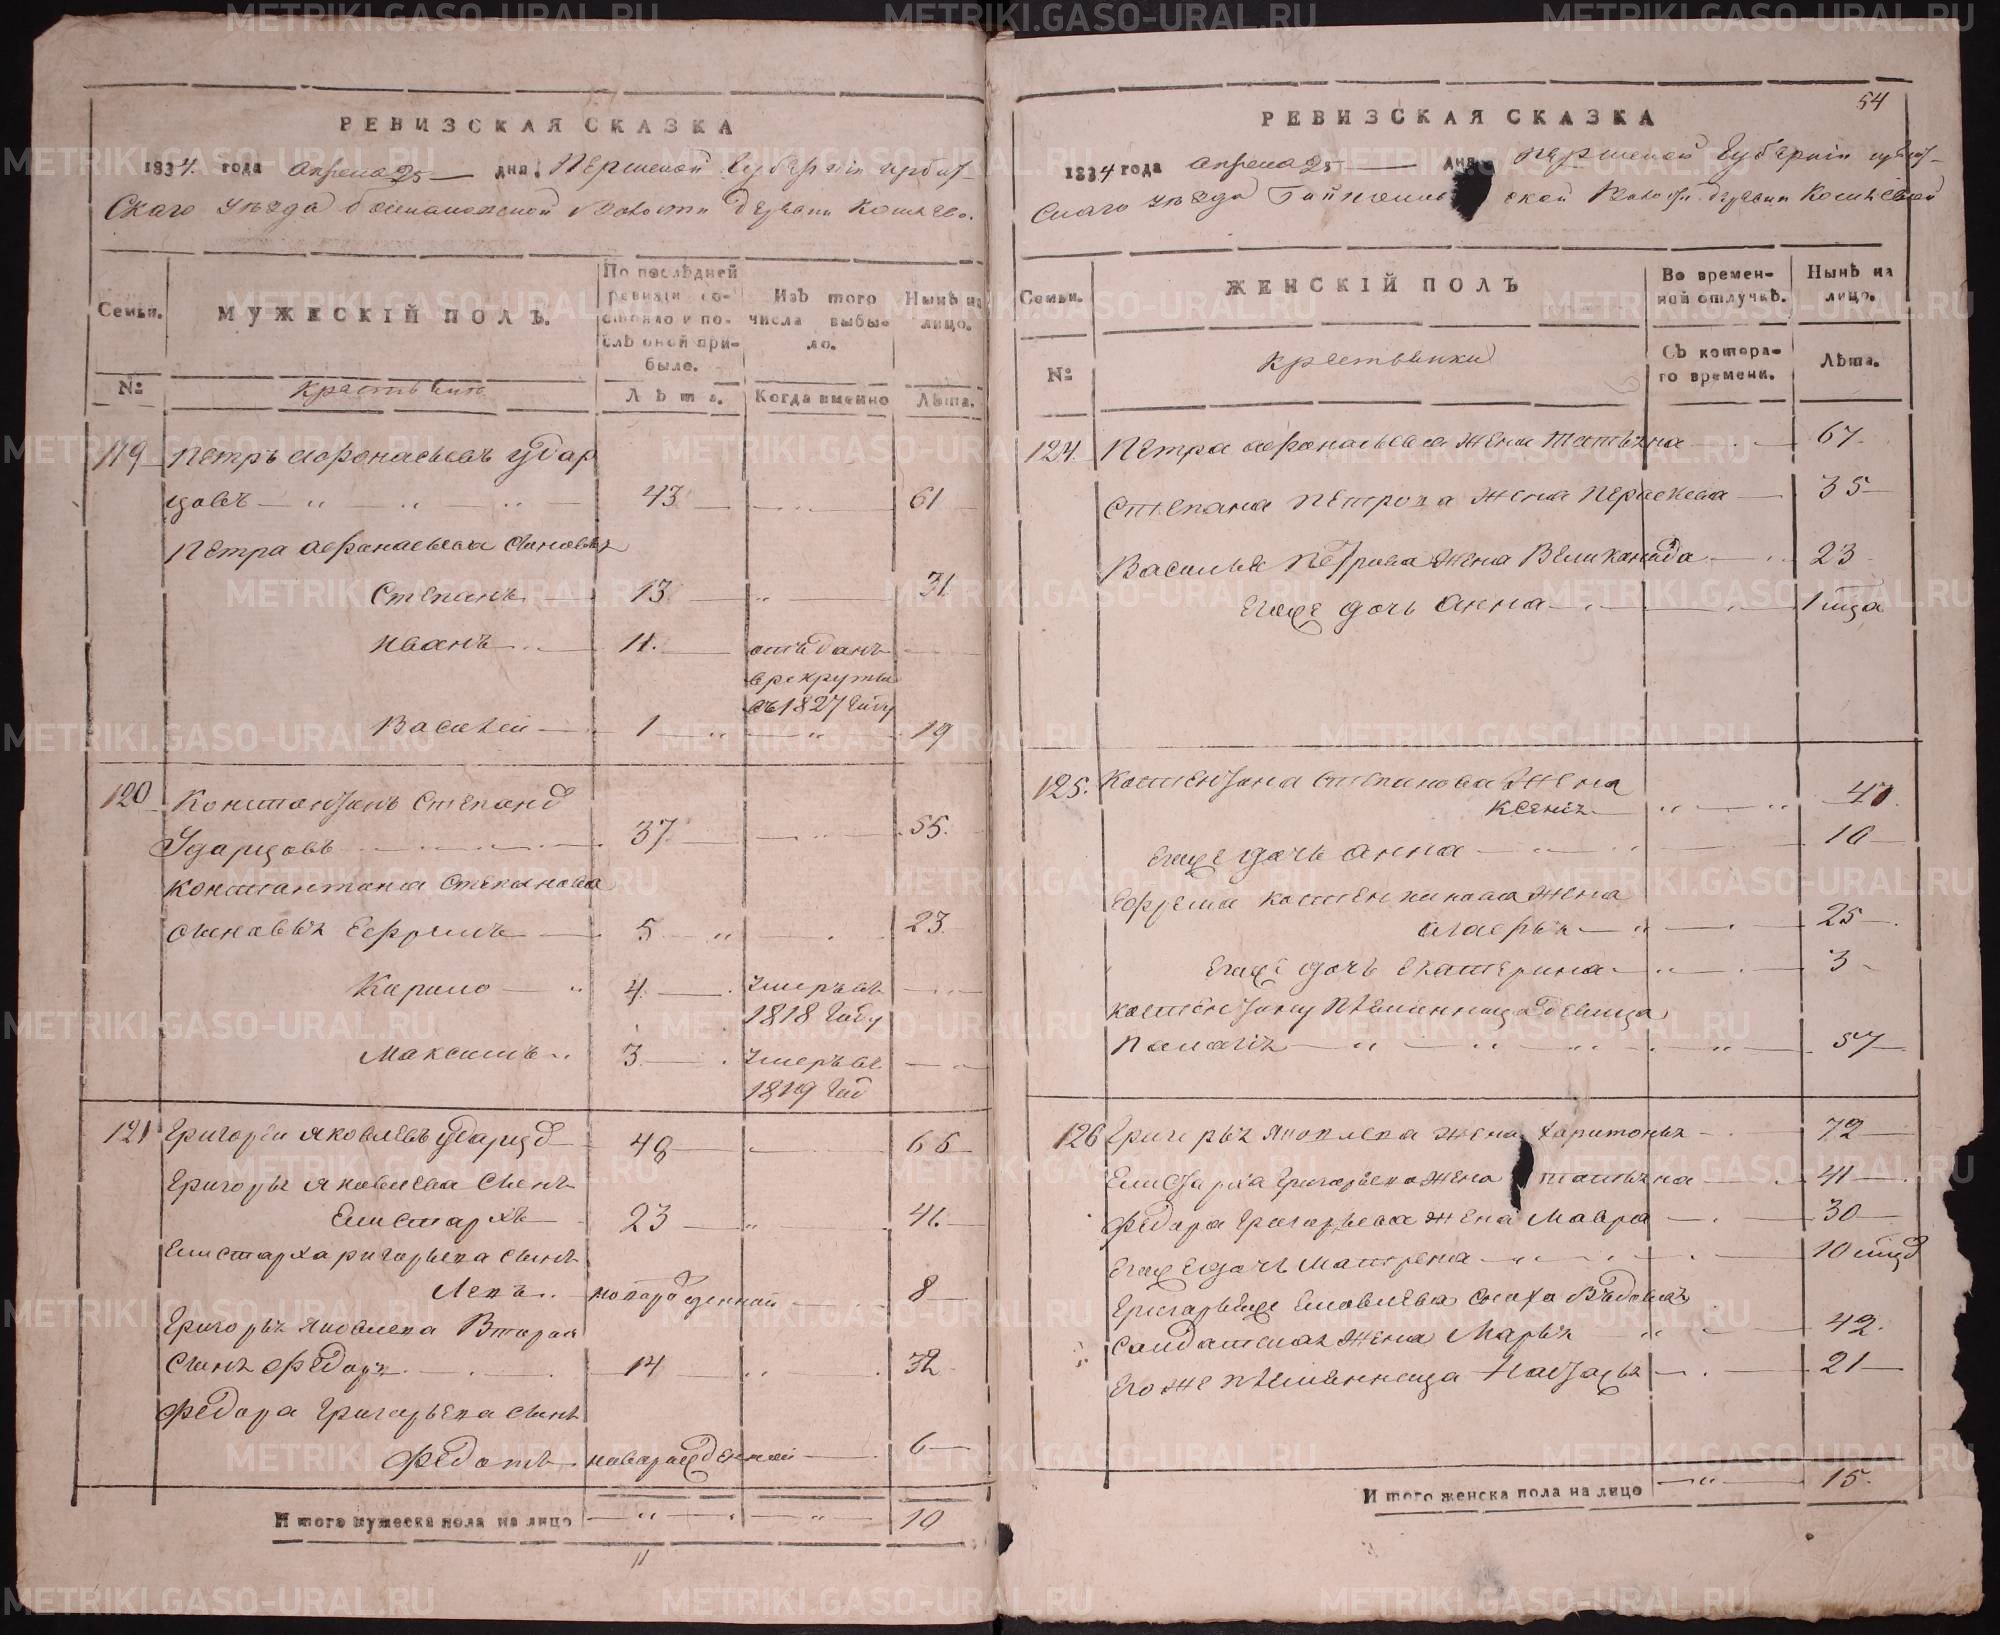 РЕВИЗСКАЯ СКАЗКА
1834. года апреля 25 дня. Пермской губернии ирбит-
скаго уезда волости деревни
Семьи.
МУЖЕСКІЙ ПОЛЪ.
По послѣдней ревизіи состояло и послѣ оной прибыло.
Изъ того числа выбыло.
Нынѣ на лицо.
№
Лѣта.
Когда именно
Лѣта.
119 Петръ Афонасьевъ Удар
цовъ 43 61
Петра Афонасьева сыновья
Степанъ 13 31
Иванъ 11. отъданъ
врекруты
въ 1827 году
Василей 1 19
120 Константинъ Степанов
Ударцовъ 37. 55.
Константина Степанова
сыновья Ефремъ 5 23.
Кирило 4. умеръ въ
1818 году
Максимъ 3. умеръ въ
1819 год
121 Григореи Яковлевъ Ударцов 48 65
Григорья Яковлева сынъ
Елистархъ 23 41.
Елистарха ригорьева сынъ
Левъ новорожденной 8
Григорья Яковлева Вторай
сынъ Федоръ 14 32
Федора Григорьева сынъ
Федотъ новарожденной 6
Итого мужеска пола на лицо 10
54
РЕВИЗСКАЯ СКАЗКА
1834 года апреля 25 дня Пермской губернии ирбит-
скаго уезда ской волости деревни
Семьи.
ЖЕНСКІЙ ПОЛЪ
Во временной отлучкѣ.
Нынѣ на лицо.
№
крестьянки
Съ котораго времени.
Лѣта.
124. Петра афонасьева жена татьяна 67
Степана Петрова жена Парасковья 35
Василья Петрова жена 23
Егоже дочь Анна 1 год
125. Костентина степанова жена
Ксения 47.
Егоже дочь анна 10
Ефрема костентинова жена
25
Егоже дочь екатерина 3
костентину племянница девица
Палагея 57
126 Григорья Яковлева жена Харитонья 72
Елистарха григорьева жена татьяна 41
Федора григорьева жена Мавра 30
Егоже дочь Матрена 10
Григорьяже Яковлева сноха Вдовая
салдатская жена Марья 42.
Его же племянница Наталья 21
Итого женска пола на лицо 15.